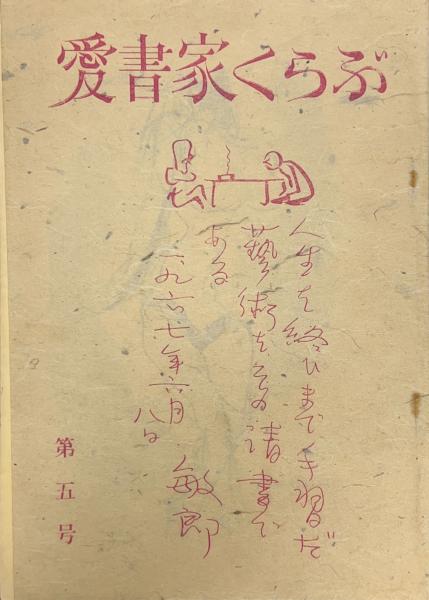 愛書家くらぶ
人生を終ひまで手習だ
藝術もその清書で
ある
一九六七年六月
八日
敏郎
第五号